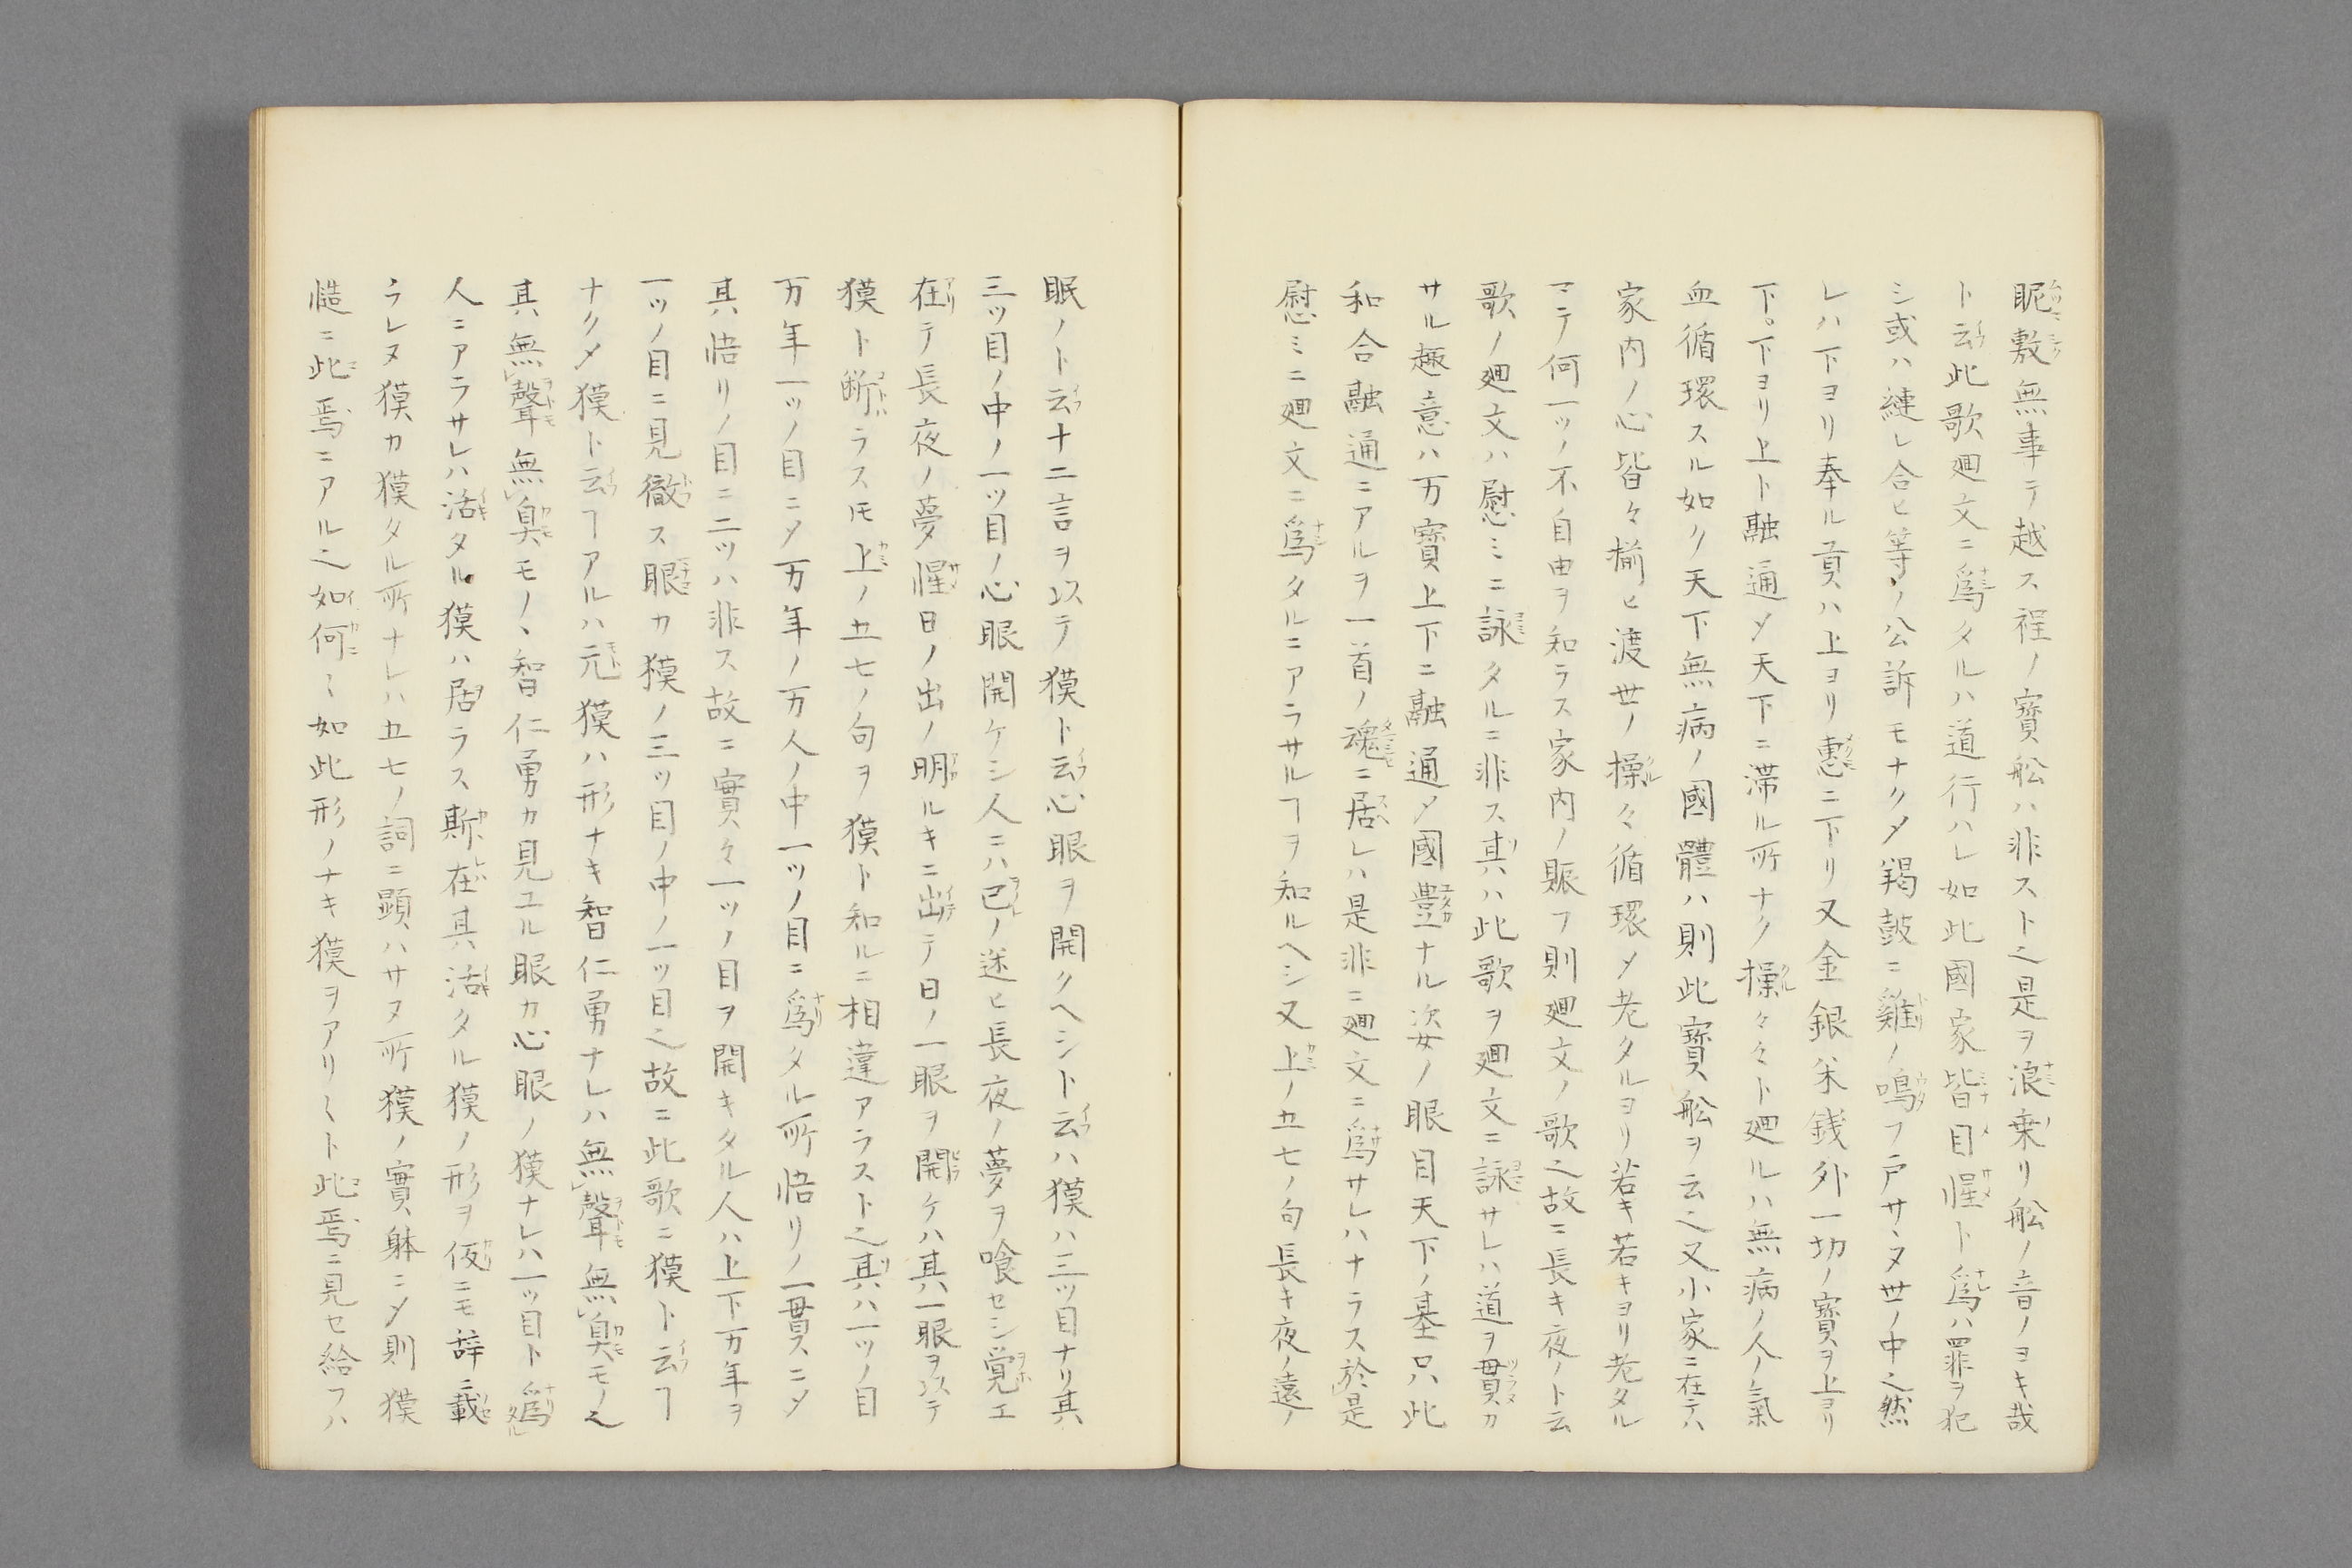 眤敷無事テ越ス裎ノ寳舩ハ非スト之是ヲ浪乗リ舩ノ音ノヨキ哉
ト云此歌廻文ニ爲タルハ道行ハレ如此國家皆目惺ト爲ハ罪ヲ犯
シ或ハ縺レ合ヒ等ノ公訴モナクメ羯鼓ニ雞ノ鳴フ戸サヽヌ世ノ中之然
レハ下ヨリ奉ル貢ハ上ヨリ惠ニ下リ又金銀米銭外一切ノ寳ヲ上ヨリ
下。下ヨリ上ト融通メ天下ニ滞ル所ナク操々々ト廻ルハ無病ノ人ノ氣
血循環スル如ク天下無病ノ國體ハ則此寳舩ヲ云之又小家ニ在テハ
家内ノ心皆々揃ヒ渡世ノ操々循環メ老タルヨリ若キ若キヨリ老タル
マテ何一ツノ不自由ヲ知ラス家内ノ賑フ則廻文ノ歌之故ニ長キ夜ノト云
歌ノ廻文ハ慰ミニ詠タルニ非ス其ハ此歌ヲ廻文ニ詠サレハ道ヲ貫カ
サル趣意ハ万寳上下ニ融通メ國豐ナル姿ノ眼目天下ノ基只此
和合融通ニアルヲ一首ノ魂ニ居レハ是非ニ廻文ニ爲サレハナラス於是
慰ミニ廻文ニ爲タルニアラサルヿヲ知ルヘシ又上ノ五七ノ句長キ夜ノ遠ノ
眠ノト云十二言ヲ以テ獏ト云心眼ヲ開クヘシト云ハ獏ハ三ツ目ナリ其
三ツ目ノ中ノ一ツ目ノ心眼開ケシ人ニハ已ノ迷ヒ長夜ノ夢ヲ喰セシ覚エ
在テ長夜ノ夢惺日ノ出ノ明ルキニ出テ日ノ一眼ヲ開ケハ其一眼ヲ以テ
獏ト断ラスモ上ノ五七ノ句ヲ獏ト和ルニ相違アラスト之其ハ一ツノ目
万年一ツノ目ニメ万年ノ万人ノ中一ツノ目ニ爲タル所悟リノ一貫ニメ
其悟リノ目ニ二ツハ非ス故ニ實々一ツノ目ヲ開キタル人ハ上下万年ヲ
一ツノ目ニ見徹ス眼カ獏ノ三ツ目ノ中ノ一ツ目之故ニ此歌ニ獏ト云ヿ
ナクメ獏ト云ヿアルハ元獏ハ形ナキ智仁勇ナレハ無聲無臭モノ之
其無聲無臭モノヽ智仁勇カ見エル眼カ心眼ノ獏ナレハ一ツ目ト爲タル
人ニアラサレハ活タル獏ハ居ラス斯在其活タル獏ノ形ヲ仮ニモ辞ニ載
ラレヌ獏カ獏タル所ナレハ五七ノ詞ニ顕ハサヌ所獏ノ實躰ニメ則獏
慥ニ此焉ニアル之如何ミ如此形ノナキ獏ヲアリミト此焉ニ見セ給フハ